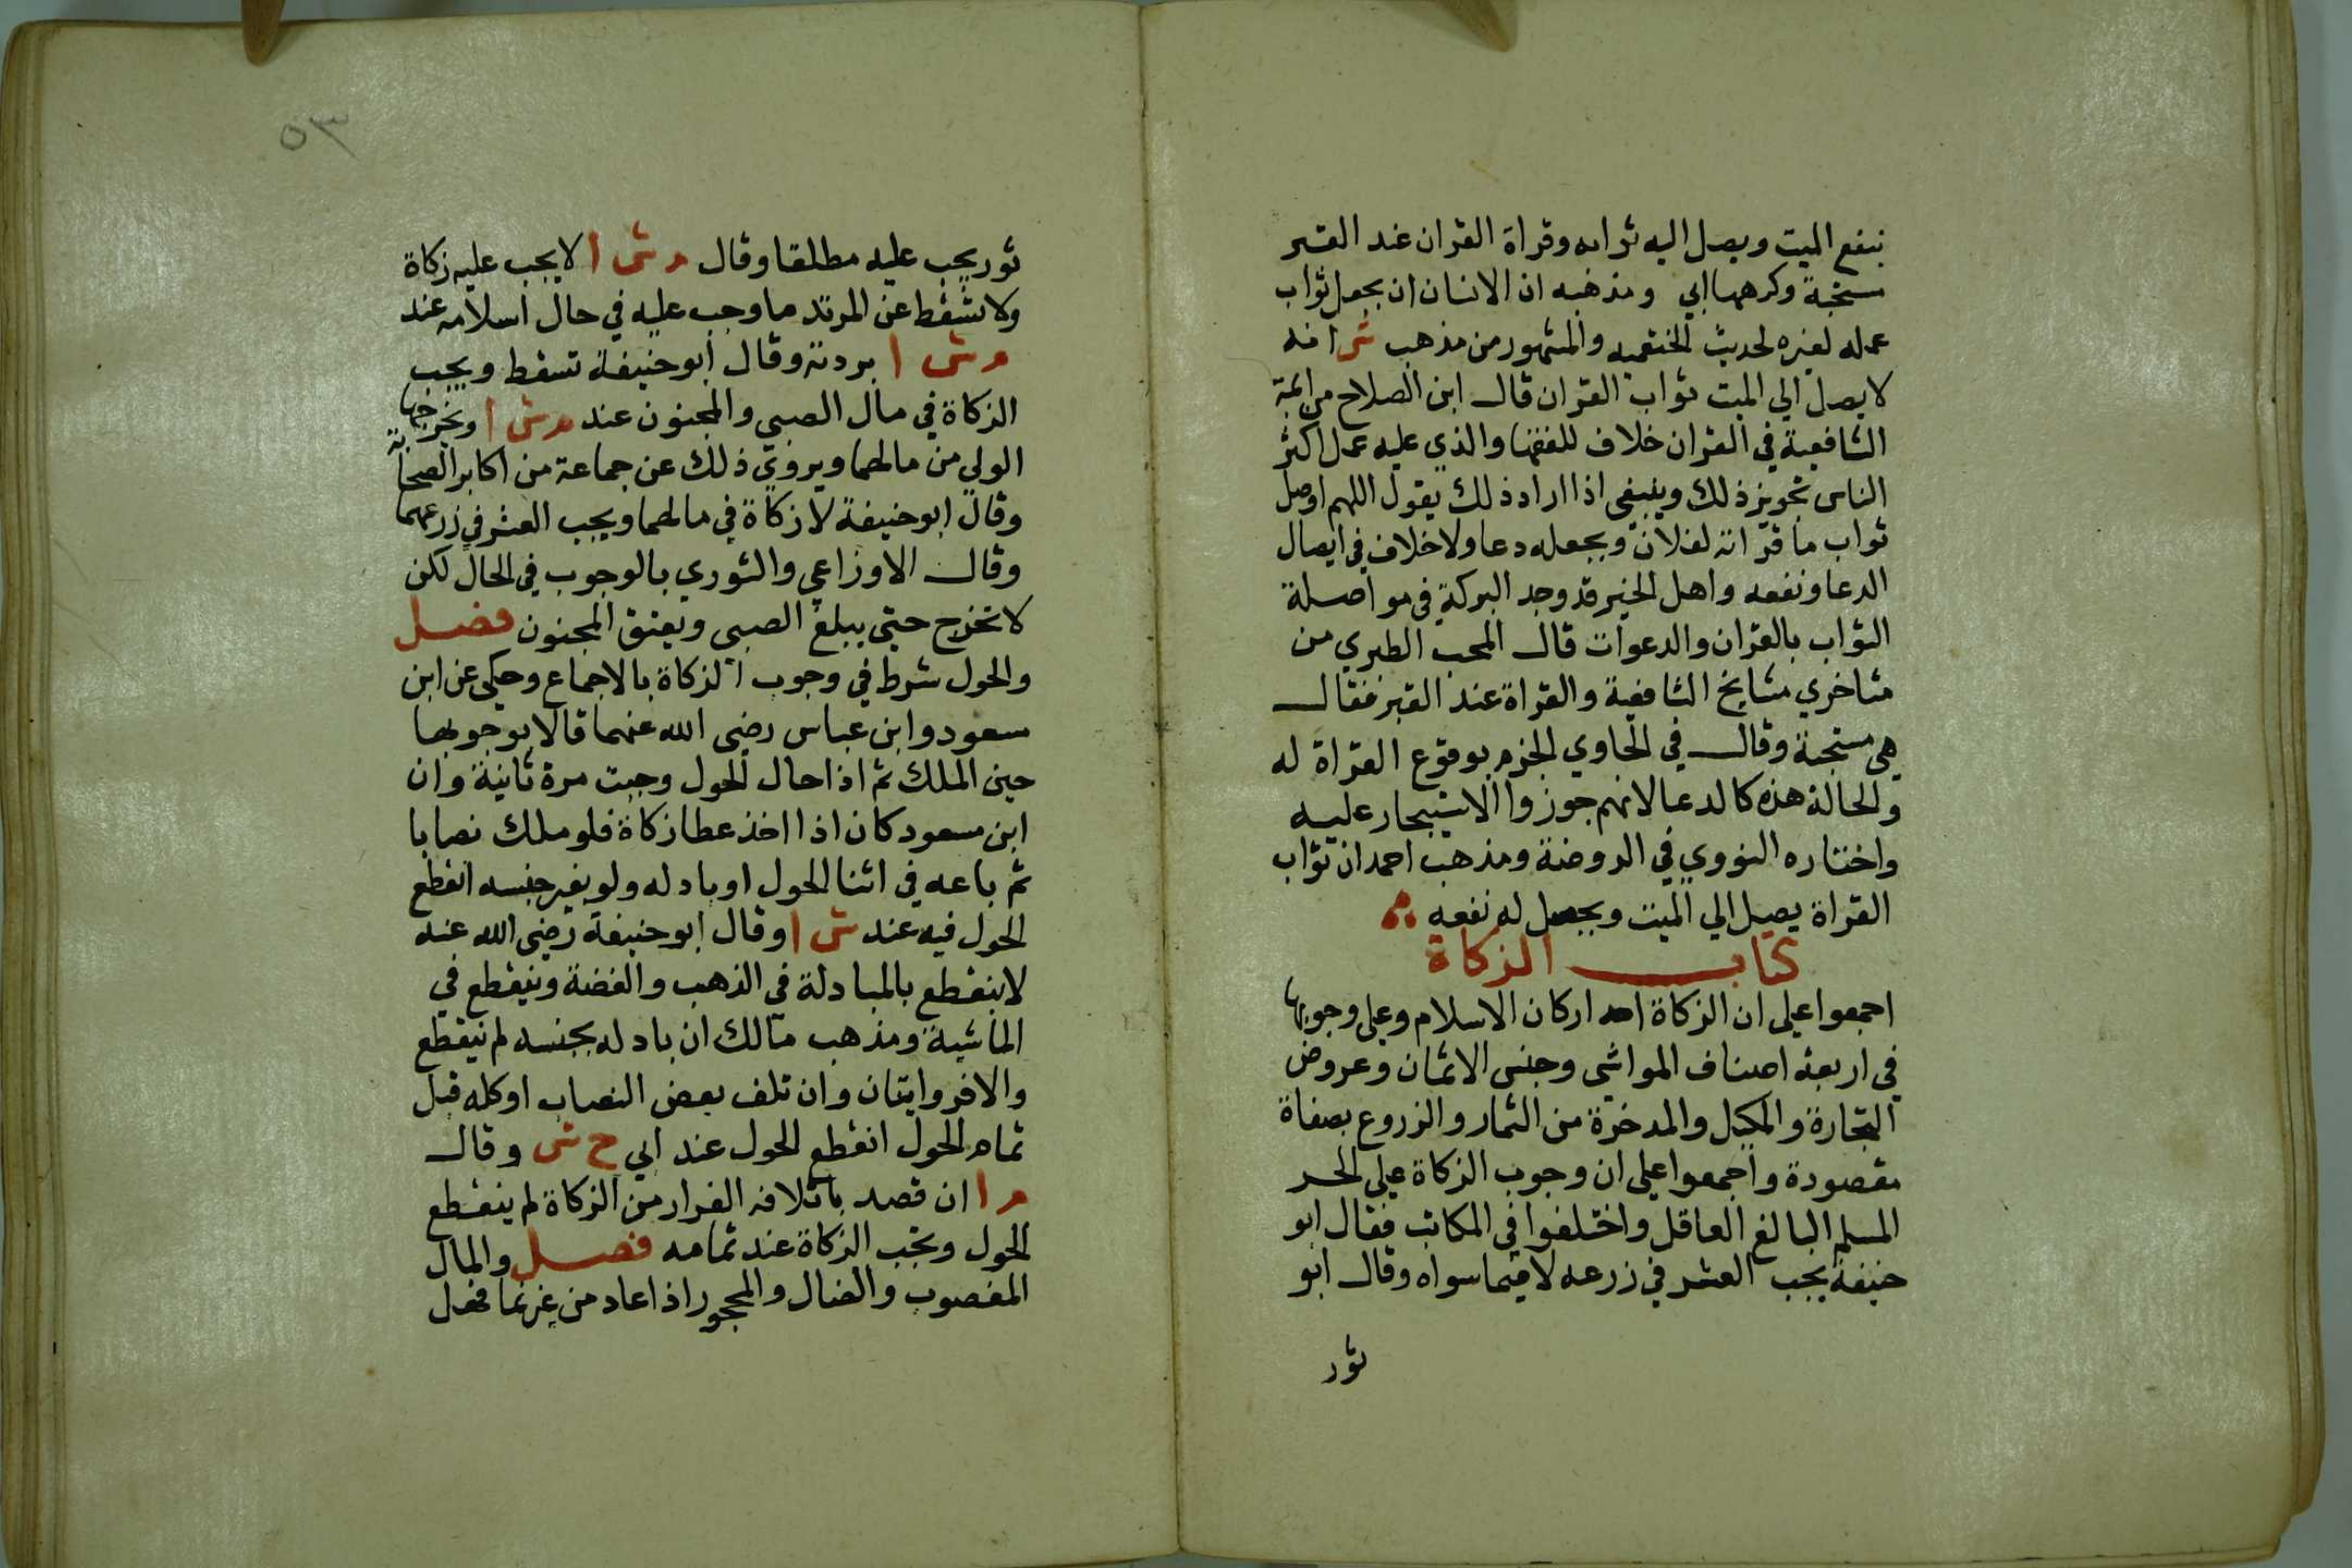 ينفع الميت ويصل اليه ثوابه وقراة القران عند القبر
مستحبة وكرهها ابي ومذهبه ان الانسان ان يجعل ثواب
عمله لغيره لحديث الخثعميه والمشهور من مذهب ش انه
لا يصل الي الميت ثواب القران قال ابن الصلاح من ايمة
الشافعية في القران خلاف للفقها والذي عليه عمل اكثر
الناس تجويز ذلك وينبغي اذا اراد ذلك يقول اللهم اوصل
ثواب ما قراته لفلان ويجعله دعا ولا خلاف في ايصال
الدعا ونفعه واهل الخير قد وجد البركة في مواصلة
الثواب بالقران والدعوات قال المحب الطبري من
متاخري مشايخ الشافعية والقراة عند القبر فقال
هي مستحبة وقال في الحاوي الجزم بوقوع القراة له
والحالة هذه كالدعا لانهم جوزوا الاستيجار عليه
واختاره النووي في الروضة ومذهب احمد ان ثواب
القراة يصل الي الميت ويحصل له نفعه
كتاب الزكاة
اجمعوا علي ان الزكاة احد اركان الاسلام وعلي وجوبها
في اربعة اصناف المواشي وجنس الاثمان وعروض
التجارة والمكيل والمدخرة من الثمار والزروع بصفاة
مقصودة واجمعوا علي ان وجوب الزكاة علي الحر
المسلم البالغ العاقل واختلفوا في المكاتب فقال ابو
حنيفة يجب العشر في زرعه لا فيما سواه وقال ابو
ثور
٥٣
ثور يجب عليه مطلقا وقال م ش ا لا يجب عليه زكاة
ولا تسقط عن المرتد ما وجب عليه في حال اسلامه عند
م ش ا بردته وقال ابو حنيفة تسقط ويجب
الزكاة في مال الصبي والمجنون عند م ش ا ويخرجها
الولي من مالهما ويروي ذلك عن جماعة من اكابر الصحابة
وقال ابو حنيفة لا زكاة في مالهما ويجب العشر في زرعهما
وقال الاوزاعي والثوري بالوجوب في الحال لكن
لا تخرج حتي يبلغ الصبي ويفيق المجنون فصل
والحول شرط في وجوب الزكاة بالاجماع وحكي عن ابن
مسعود وابن عباس رضي الله عنهما قالا بوجوبها
حين الملك ثم اذا حال الحول وجبت مرة ثانية وان
ابن مسعود كان اذا اخذ عطا زكاة فلو ملك نصابا
ثم باعه في اثنا الحول او بادله ولو بغير جنسه انقطع
الحول فيه عند ش ا وقال ابو حنيفة رضي الله عنه
لا ينقطع بالمبادلة في الذهب والفضة وينقطع في
الماشية ومذهب مالك ان بادله بجنسه لم ينقطع
والا فروايتان وان تلف بعض النصاب او كله قبل
تمام الحول انقطع الحول عند ابي ح ش وقال
م ا ان قصد باتلافه الفرار من الزكاة لم ينقطع
الحول وتجب الزكاة عند تمامه فصل والمال
المغصوب والضال والمجحور اذا عاد من غير نما فعل